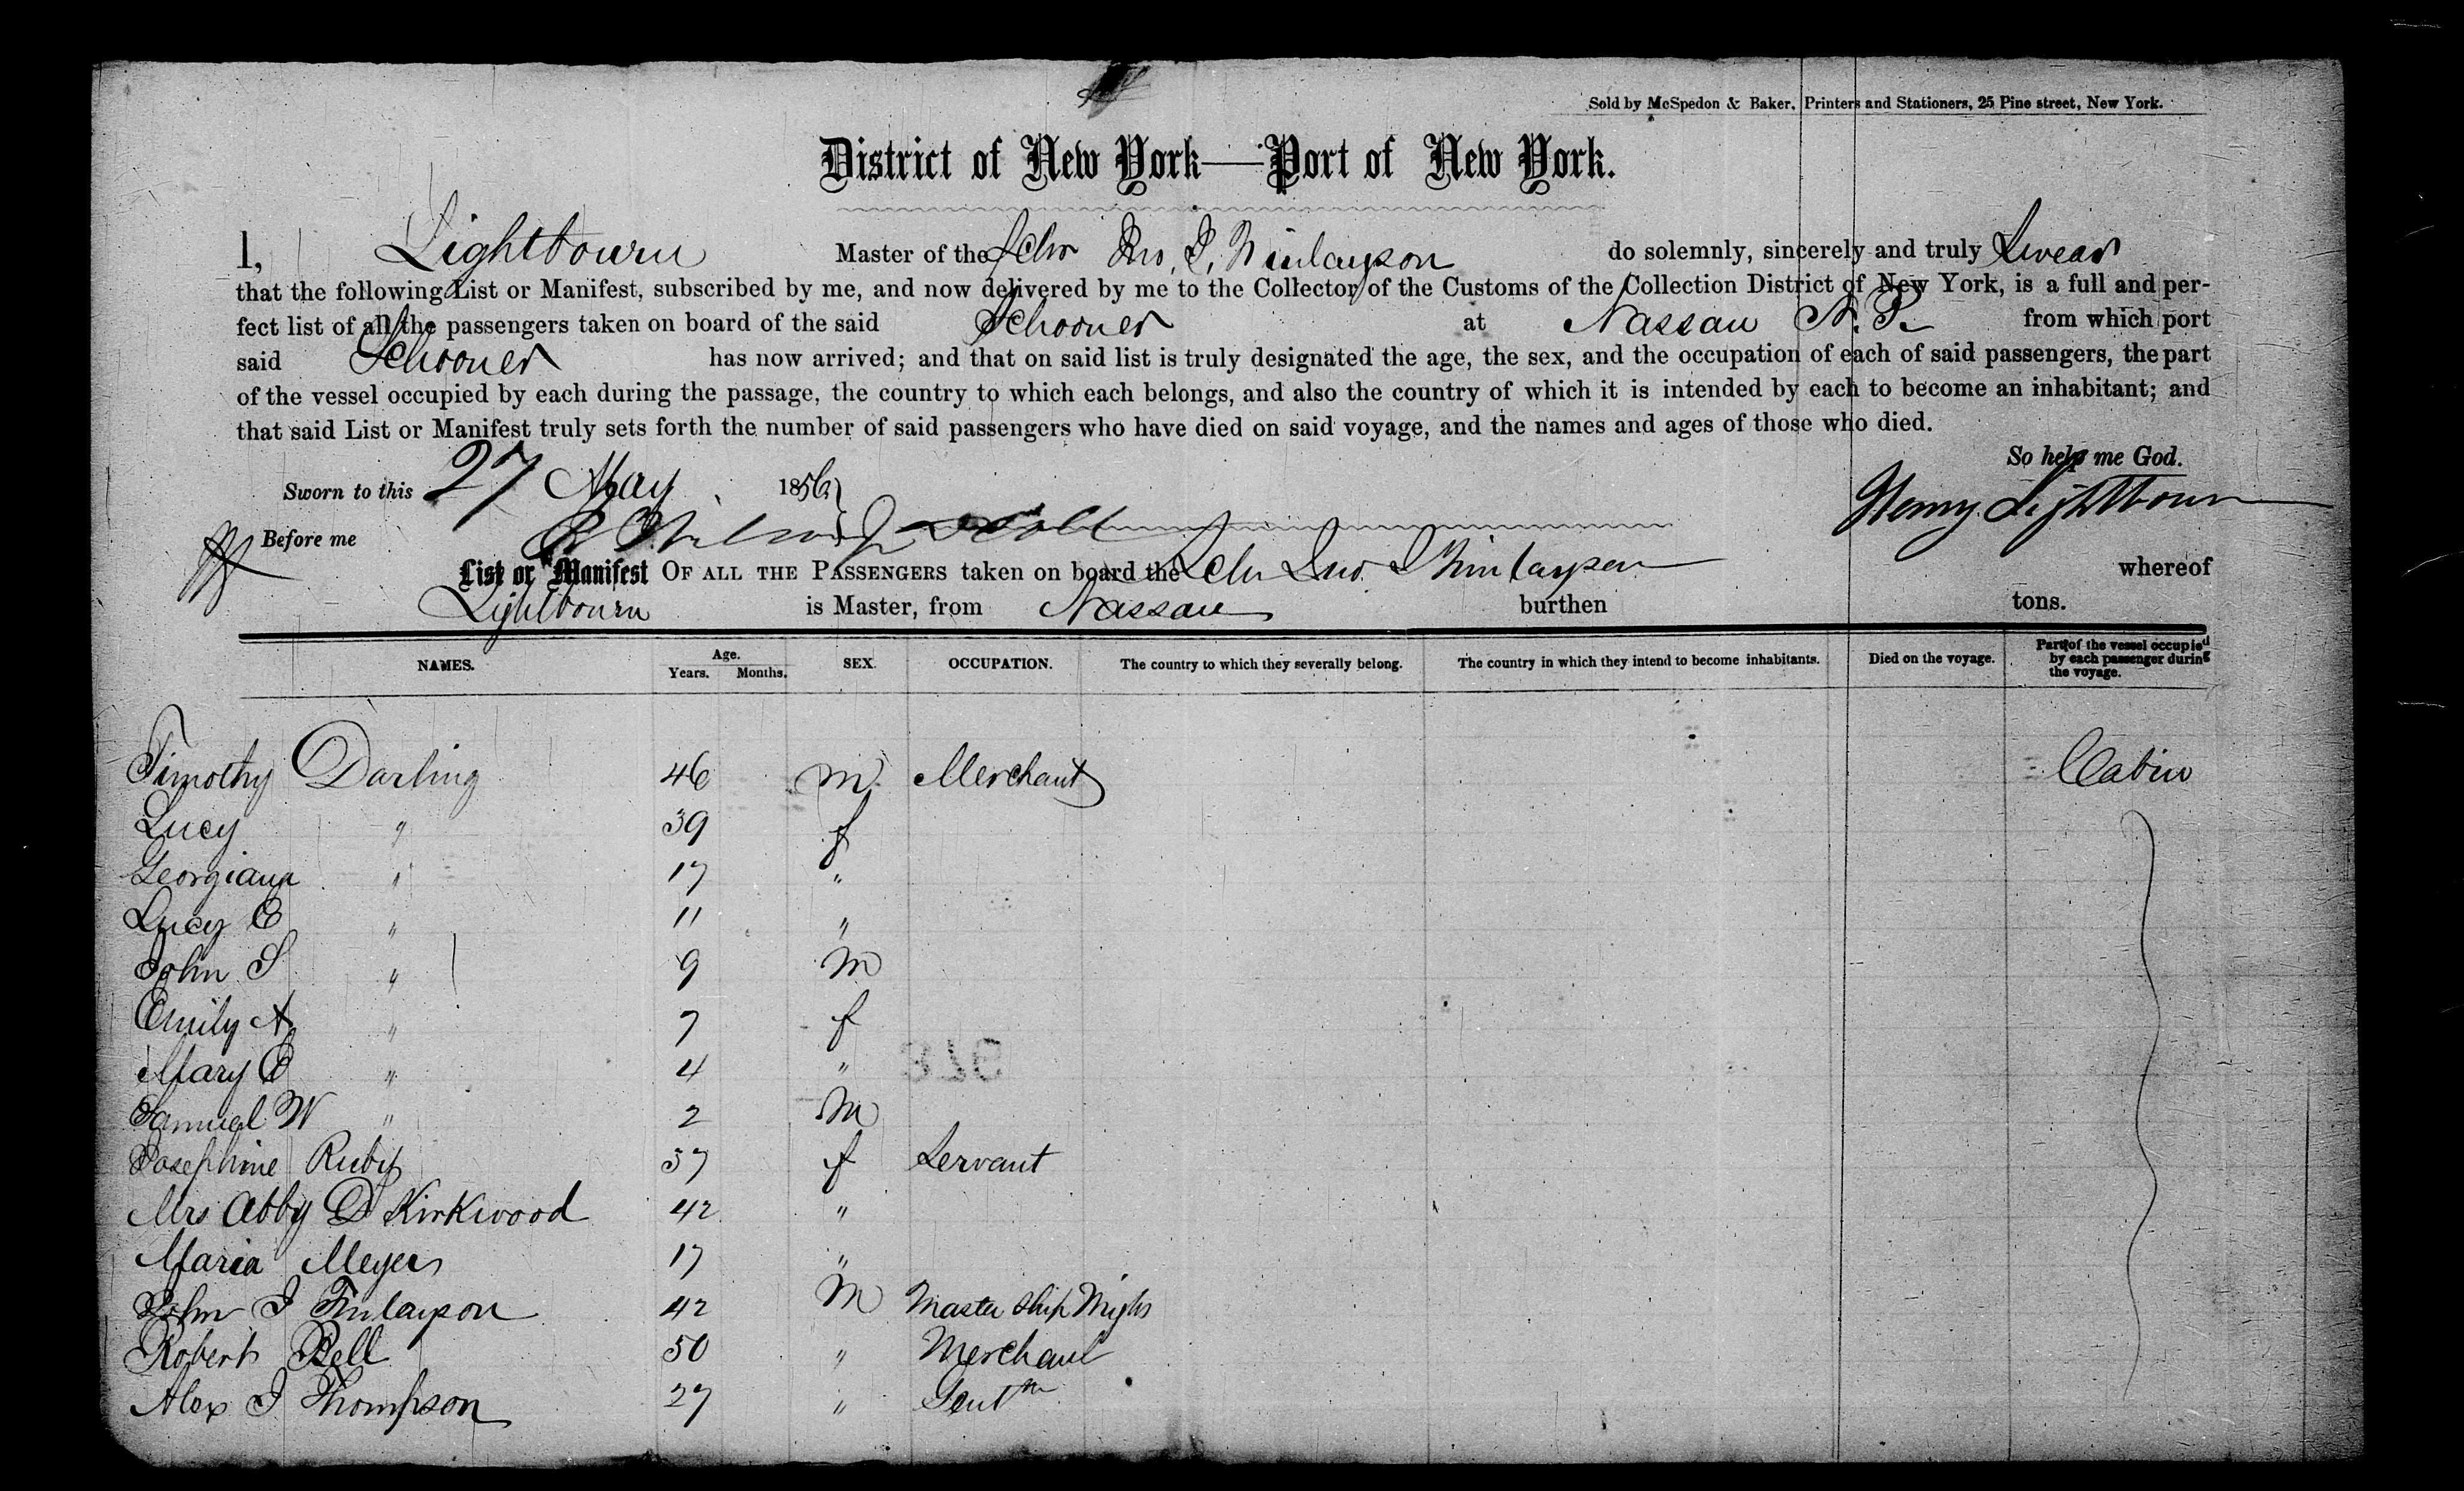 Sold by McSpedon & Baker, Printers and Stationers, 25 Pine street, New York.
District of New York—Port of New York.
I, Lightbourn Master of the Schr Jno. S. Finlayson do solemnly, sincerely and truly Swear
that the following List or Manifest, subscribed by me, and now delivered by me to the Collector of the Customs of the Collection District of New York, is a full and per-
fect list of all the passengers taken on board of the said Schooner at Nassau N. P. from which port
said Schooner has now arrived; and that on said list is truly designated the age, the sex, and the occupation of each of said passengers, the part
of the vessel occupied by each during the passage, the country to which each belongs, and also the country of which it is intended by each to become an inhabitant; and
that said List or Manifest truly sets forth the number of said passengers who have died on said voyage, and the names and ages of those who died.
So help me God.
Sworn to this 27 May 1856
Henry Lightbourn
Before me
List or Manifest OF ALL THE PASSENGERS taken on board the Schr Jno Finlayson whereof
Lightbourn is Master, from Nassau burthen tons.
NAMES. Age. Years. Months. SEX. OCCUPATION. The country to which they severally belong. The country in which they intend to become inhabitants. Died on the voyage. Part of the vessel occupied by each passenger during the voyage.
Timothy Darling 46 m Merchant Cabin
Lucy " 39 f
Georgiana " 17 "
Lucy E " 11 "
John S " 9 m
Emily A " 7 f
Mary E " 4 "
Samuel W " 2 m
Josephine Ruby 37 f Servant
Mrs Abby D Kirkwood 42 "
Maria Meyers 17 "
John I Finlayson 42 m Master Ship
Robert Bell 50 " Merchant
Alex I Thompson 27 " Gentm